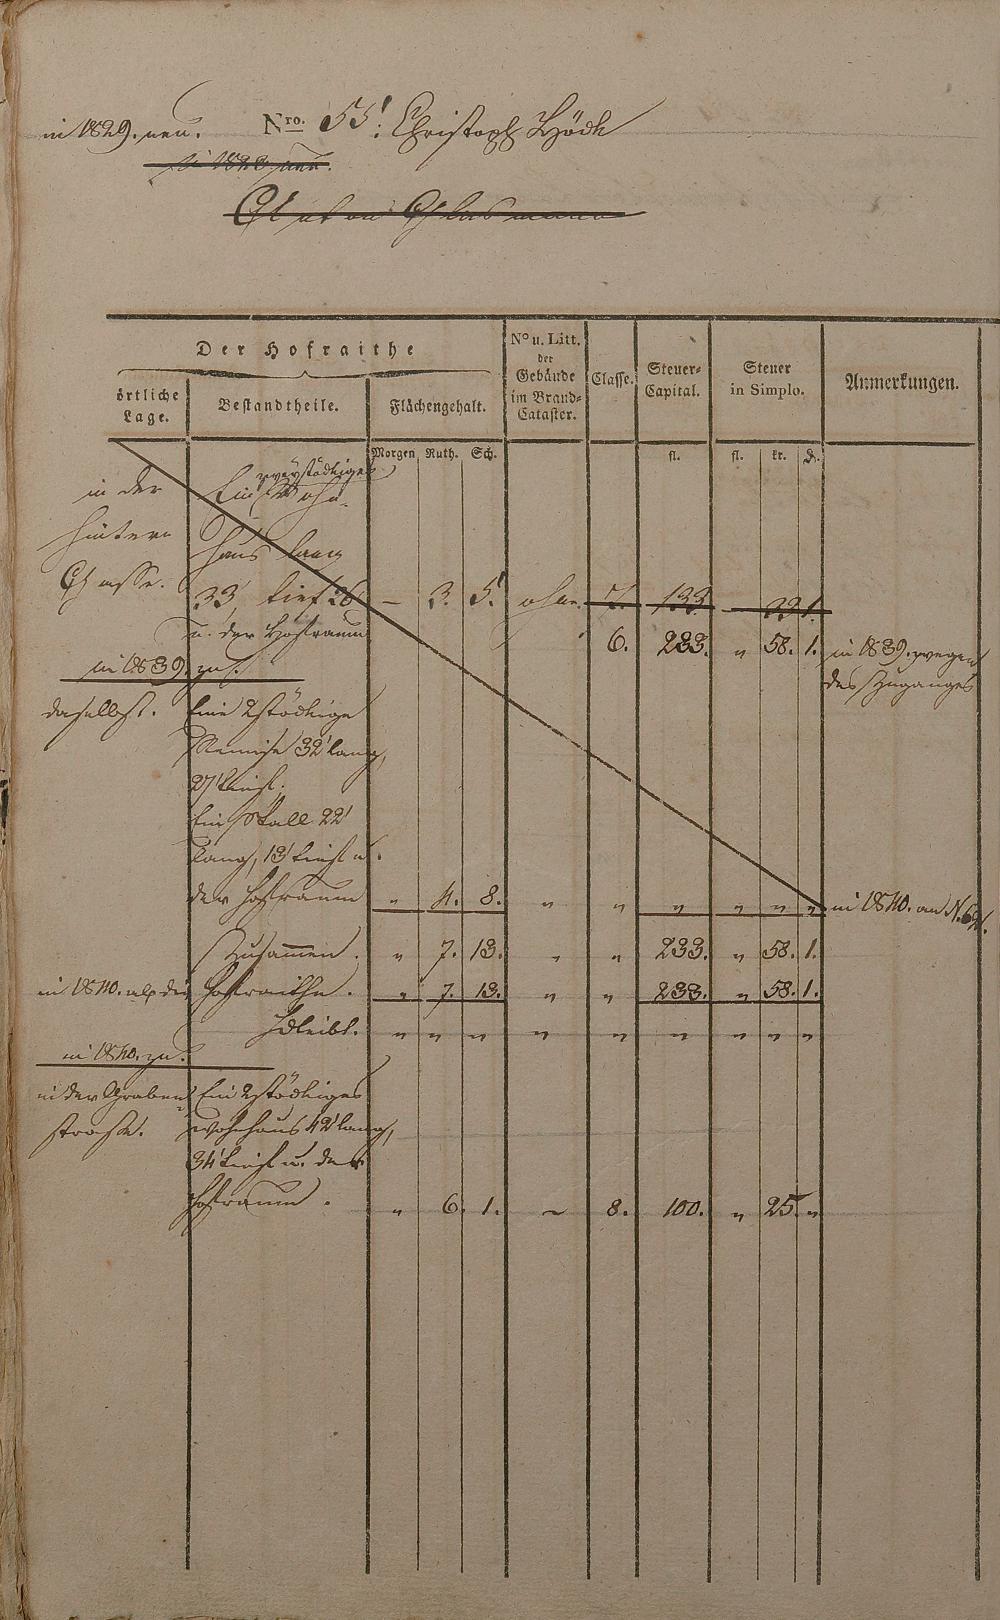 in 1829. neu. Nro. 55. Christoph Höck
in 1828 neu.
Der Hofraithe
örtliche Lage.
Bestandtheile.
Flächengehalt.
No u. Litt. der Gebäude im Brand-Cataster.
Classe.
Steuer-Capital.
Steuer in Simplo.
Anmerkungen.
Morgen Ruth. Sch. fl. fl. kr. d.
zweystöckiges
in der Ein Wohn-
hintern haus lang
Gasse. 33, tief 26 — 3. 5. ohne. 7. 133. — 33 1.
u. der Hofraum 6. 233. „ 58. 1. in 1839. wegen
in 1839. zu. des Zuganges
daselbst. Eine 2stöckige
Remise 32' lang,
27' tief.
Ein Stall 22'
lang, 13' tief u.
der Hofraum „ 4. 8. „ „ „ „ „ „ in 1840. an N.
Zusammen. „ 7. 13. „ „ 233. „ 58. 1.
in 1840. als die Hofraithe. „ 7. 13. „ „ 233. „ 58. 1.
bleibt. „ „ „ „ „ „ „ „ „
in 1840. zu.
in der Graben Ein 2stöckiges
strasse. Wohnhaus 42' lang,
34' tief u. der
Hofraum. „ 6. 1. ~ 8. 100. „ 25. „